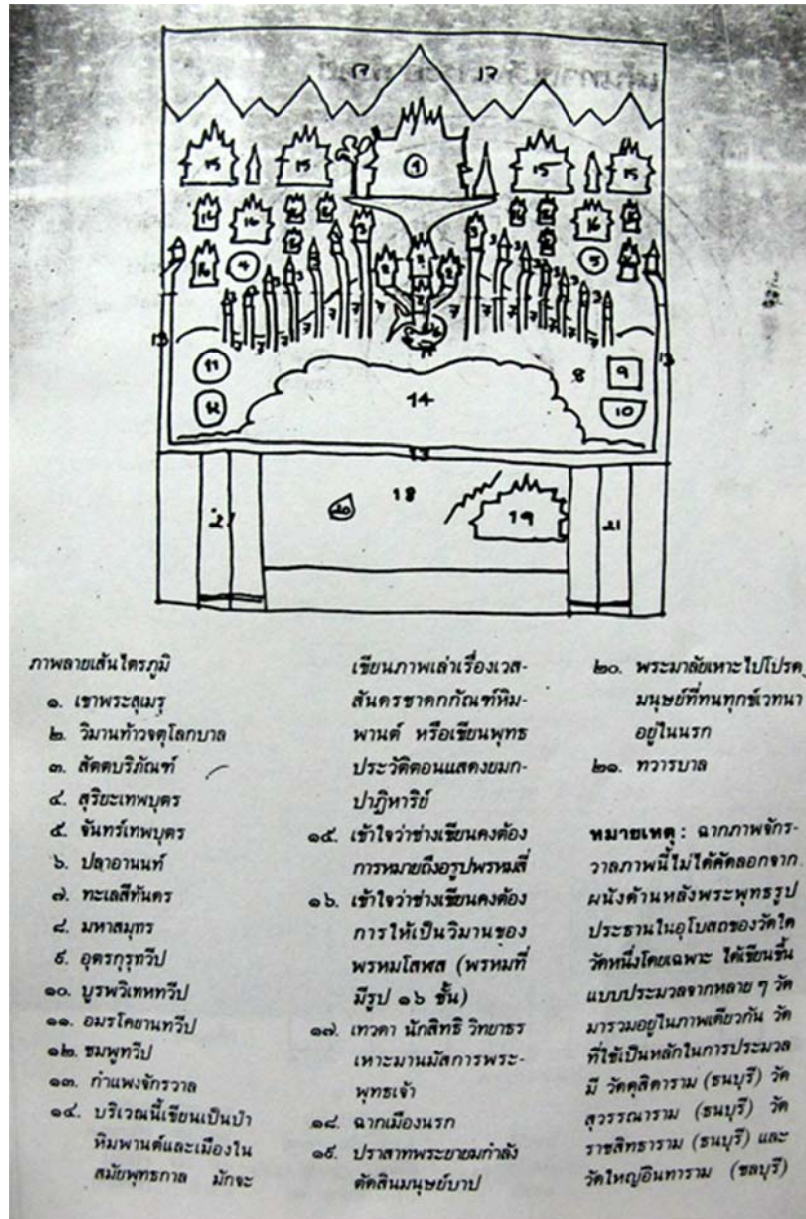 17 17
15 15 1 15 15
16 16 16 16 3 3 16 16 16 16
16 16
16 4 2 2 2 5 16
3 3 3 3 3 3 3 3
7 7 7 7 7 7 7 7
13 13
11 8 9
12 14 10
13
21 20 18 19 21
ภาพลายเส้นไตรภูมิ
๑. เขาพระสุเมรุ
๒. วิมานท้าวจตุโลกบาล
๓. สัตตบริภัณฑ์
๔. สุริยะเทพบุตร
๕. จันทร์เทพบุตร
๖. ปลาอานนท์
๗. ทะเลสีทันดร
๘. มหาสมุทร
๙. อุตรกุรุทวีป
๑๐. บูรพวิเทหทวีป
๑๑. อมรโคยานทวีป
๑๒. ชมพูทวีป
๑๓. กำแพงจักรวาล
๑๔. บริเวณนี้เขียนเป็นป่า
หิมพานต์และเมืองใน
สมัยพุทธกาล มักจะ
เขียนภาพเล่าเรื่องเวส-
สันดรชาดกกัณฑ์หิม-
พานต์ หรือเขียนพุทธ
ประวัติตอนแสดงยมก-
ปาฏิหาริย์
๑๕. เข้าใจว่าช่างเขียนคงต้อง
การหมายถึงอรูปพรหมสี่
๑๖. เข้าใจว่าช่างเขียนคงต้อง
การให้เป็นวิมานของ
พรหมโสฬส (พรหมที่
มีรูป ๑๖ ชั้น)
๑๗. เทวดา นักสิทธิ วิทยาธร
เหาะมานมัสการพระ-
พุทธเจ้า
๑๘. ฉากเมืองนรก
๑๙. ปราสาทพระยายมกำลัง
ตัดสินมนุษย์บาป
๒๐. พระมาลัยเหาะไปโปรด
มนุษย์ที่ทนทุกข์เวทนา
อยู่ในนรก
๒๑. ทวารบาล
หมายเหตุ : ฉากภาพจักร-
วาลภาพนี้ไม่ได้คัดลอกจาก
ผนังด้านหลังพระพุทธรูป
ประธานในอุโบสถของวัดใด
วัดหนึ่งโดยเฉพาะ ได้เขียนขึ้น
แบบประมวลจากหลาย ๆ วัด
มารวมอยู่ในภาพเดียวกัน วัด
ที่ใช้เป็นหลักในการประมวล
มี วัดดุสิดาราม (ธนบุรี) วัด
สุวรรณาราม (ธนบุรี) วัด
ราชสิทธาราม (ธนบุรี) และ
วัดใหญ่อินทาราม (ชลบุรี)